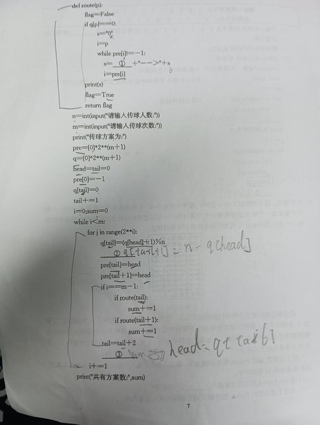 def route(p):
flag=False
if q[p]==0:
s="0"
i=p
while pre[i]!=-1:
s= ① +"-->"+s
i=pre[i]
print(s)
flag=True
return flag
n=int(input("请输入传球人数:"))
m=int(input("请输入传球次数:"))
print("传球方案为:")
pre=[0]*2**(m+1)
q=[0]*2**(m+1)
head=tail=0
pre[0]=-1
q[tail]=0
tail+=1
i=0;sum=0
while i<m:
for j in range(2**i):
q[tail]=(q[head]+1)%n
② q[tail+1] = n - q[head]
pre[tail]=head
pre[tail+1]=head
if i==m-1:
if route(tail):
sum+=1
if route(tail+1):
sum+=1
tail=tail+2
③ head=
i+=1
print("共有方案数:",sum)
7